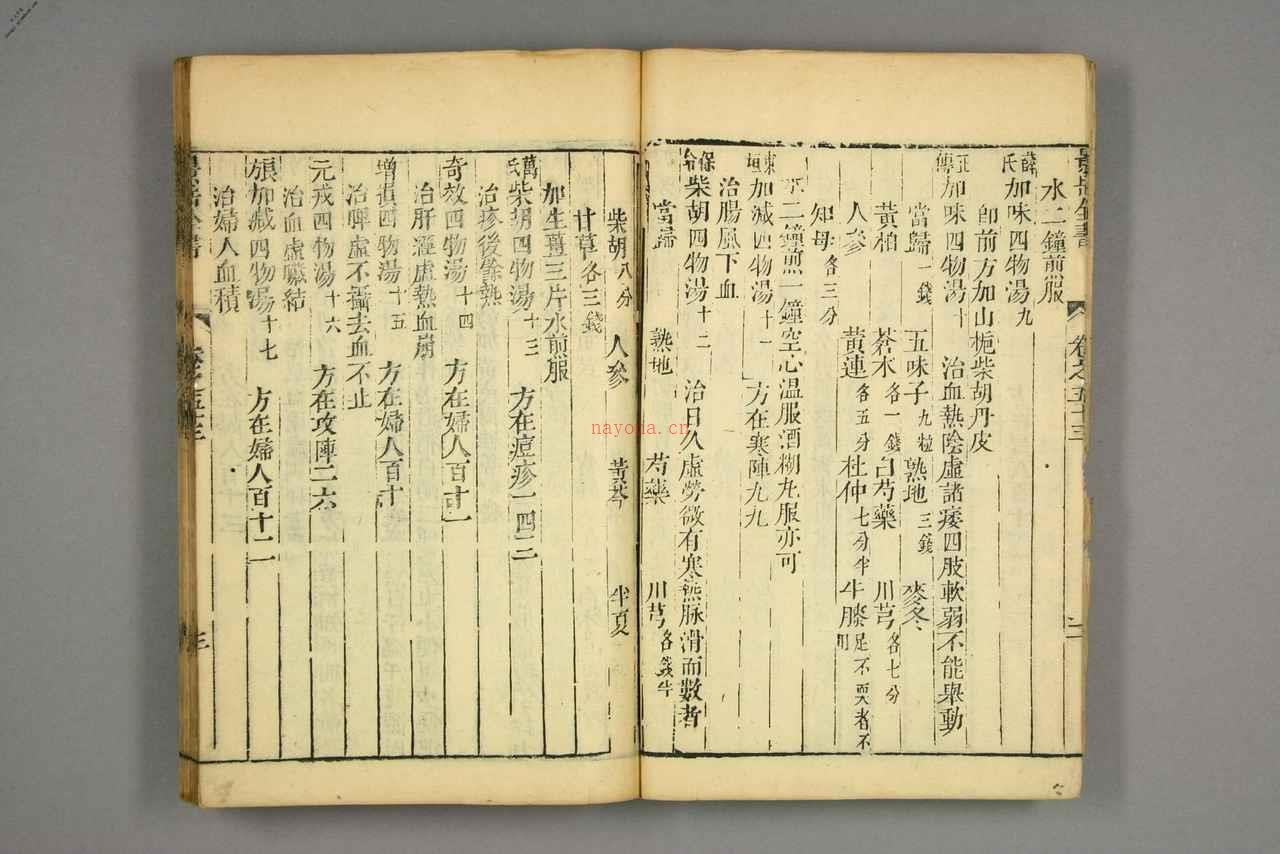 景岳全書 卷之五十三 二
水二鍾煎服
薛氏加味四物湯九
即前方加山梔柴胡丹皮
正傳加味四物湯十 治血熱陰虛諸痿四肢軟弱不能舉動
當歸一錢 五味子九粒 熟地三錢 麥冬
黃柏 蒼朮各一錢 白芍藥 川芎各七分
人參 黃連各五分 杜仲七分半 牛膝足不耎者不用
知母各三分
水二鍾煎一鍾空心温服酒糊丸服亦可
東垣加減四物湯十一 方在寒陣九九
治腸風下血
保命柴胡四物湯十二 治日久虛勞微有寒熱脉滑而數者
當歸 熟地 芍藥 川芎各錢半
柴胡八分 人參 黃芩 半夏
甘草各三錢
加生薑三片水煎服
萬氏柴胡四物湯十三 方在痘疹一四三
治疹後餘熱
奇效四物湯十四 方在婦人百十一
治肝經虛熱血崩
增損四物湯十五 方在婦人百十
治脾虛不攝去血不止
元戎四物湯十六 方在攻陣二六
治血虛臟結
加減四物湯十七 方在婦人百十二
治婦人血積
nayona.cn